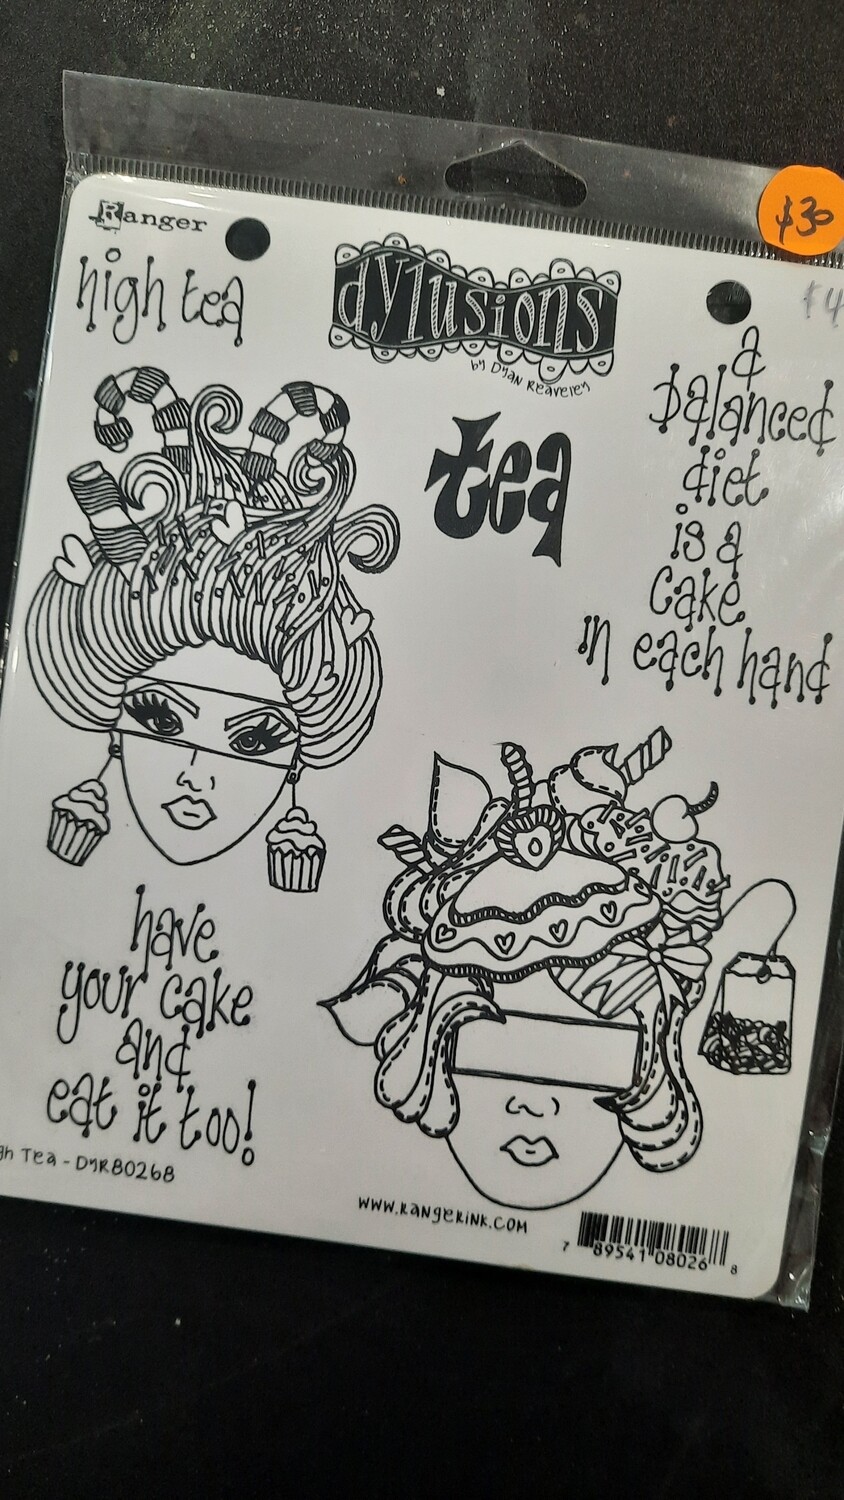 Ranger
high tea
dylusions
by Dyan Reaveley
$30
$4
tea
a
balanced
diet
is a
cake
in each hand
have
your cake
and
eat it too!
Tea - DYR80268
www.Rangerink.com
7 89541 08026 8